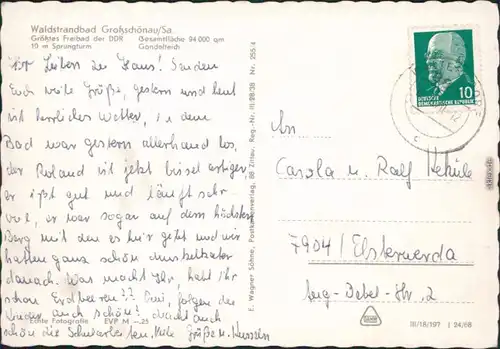 Waldstrandbad Großschönau/Sa.
Größtes Freibad der DDR Gesamtfläche 94 000 qm
10 m Sprungturm Gondelteich
Ihr Lieben zu Haus! Senden
Euch viele Grüße, gestern und heut
ist herrliches Wetter, in dem
Bad war gestern allerhand los,
der Roland ist jetzt bissel artiger,
er ißt gut und läuft sehr
viel, er war sogar auf dem höchsten
Berg mit den es hier gibt und wir
hatten ganz schön Muskelkater
danach. Was macht Ihr, habt Ihr
schon Erdbeeren??
Kinder auch schön? macht auch
schön die Schularbeiten. Viele Grüße u. Küsse
Echte Fotografie EVP M -,25
E. Wagner Söhne, Postkartenverlag, 88 Zittau, Reg.-Nr. III/28/38 Nr. 255 4
10
DEUTSCHE
DEMOKRATISCHE REPUBLIK
An
Carola u. Ralf
7904/Elsterwerda
Aug.-Bebel-Str. 2
III/18/197 I 24/68